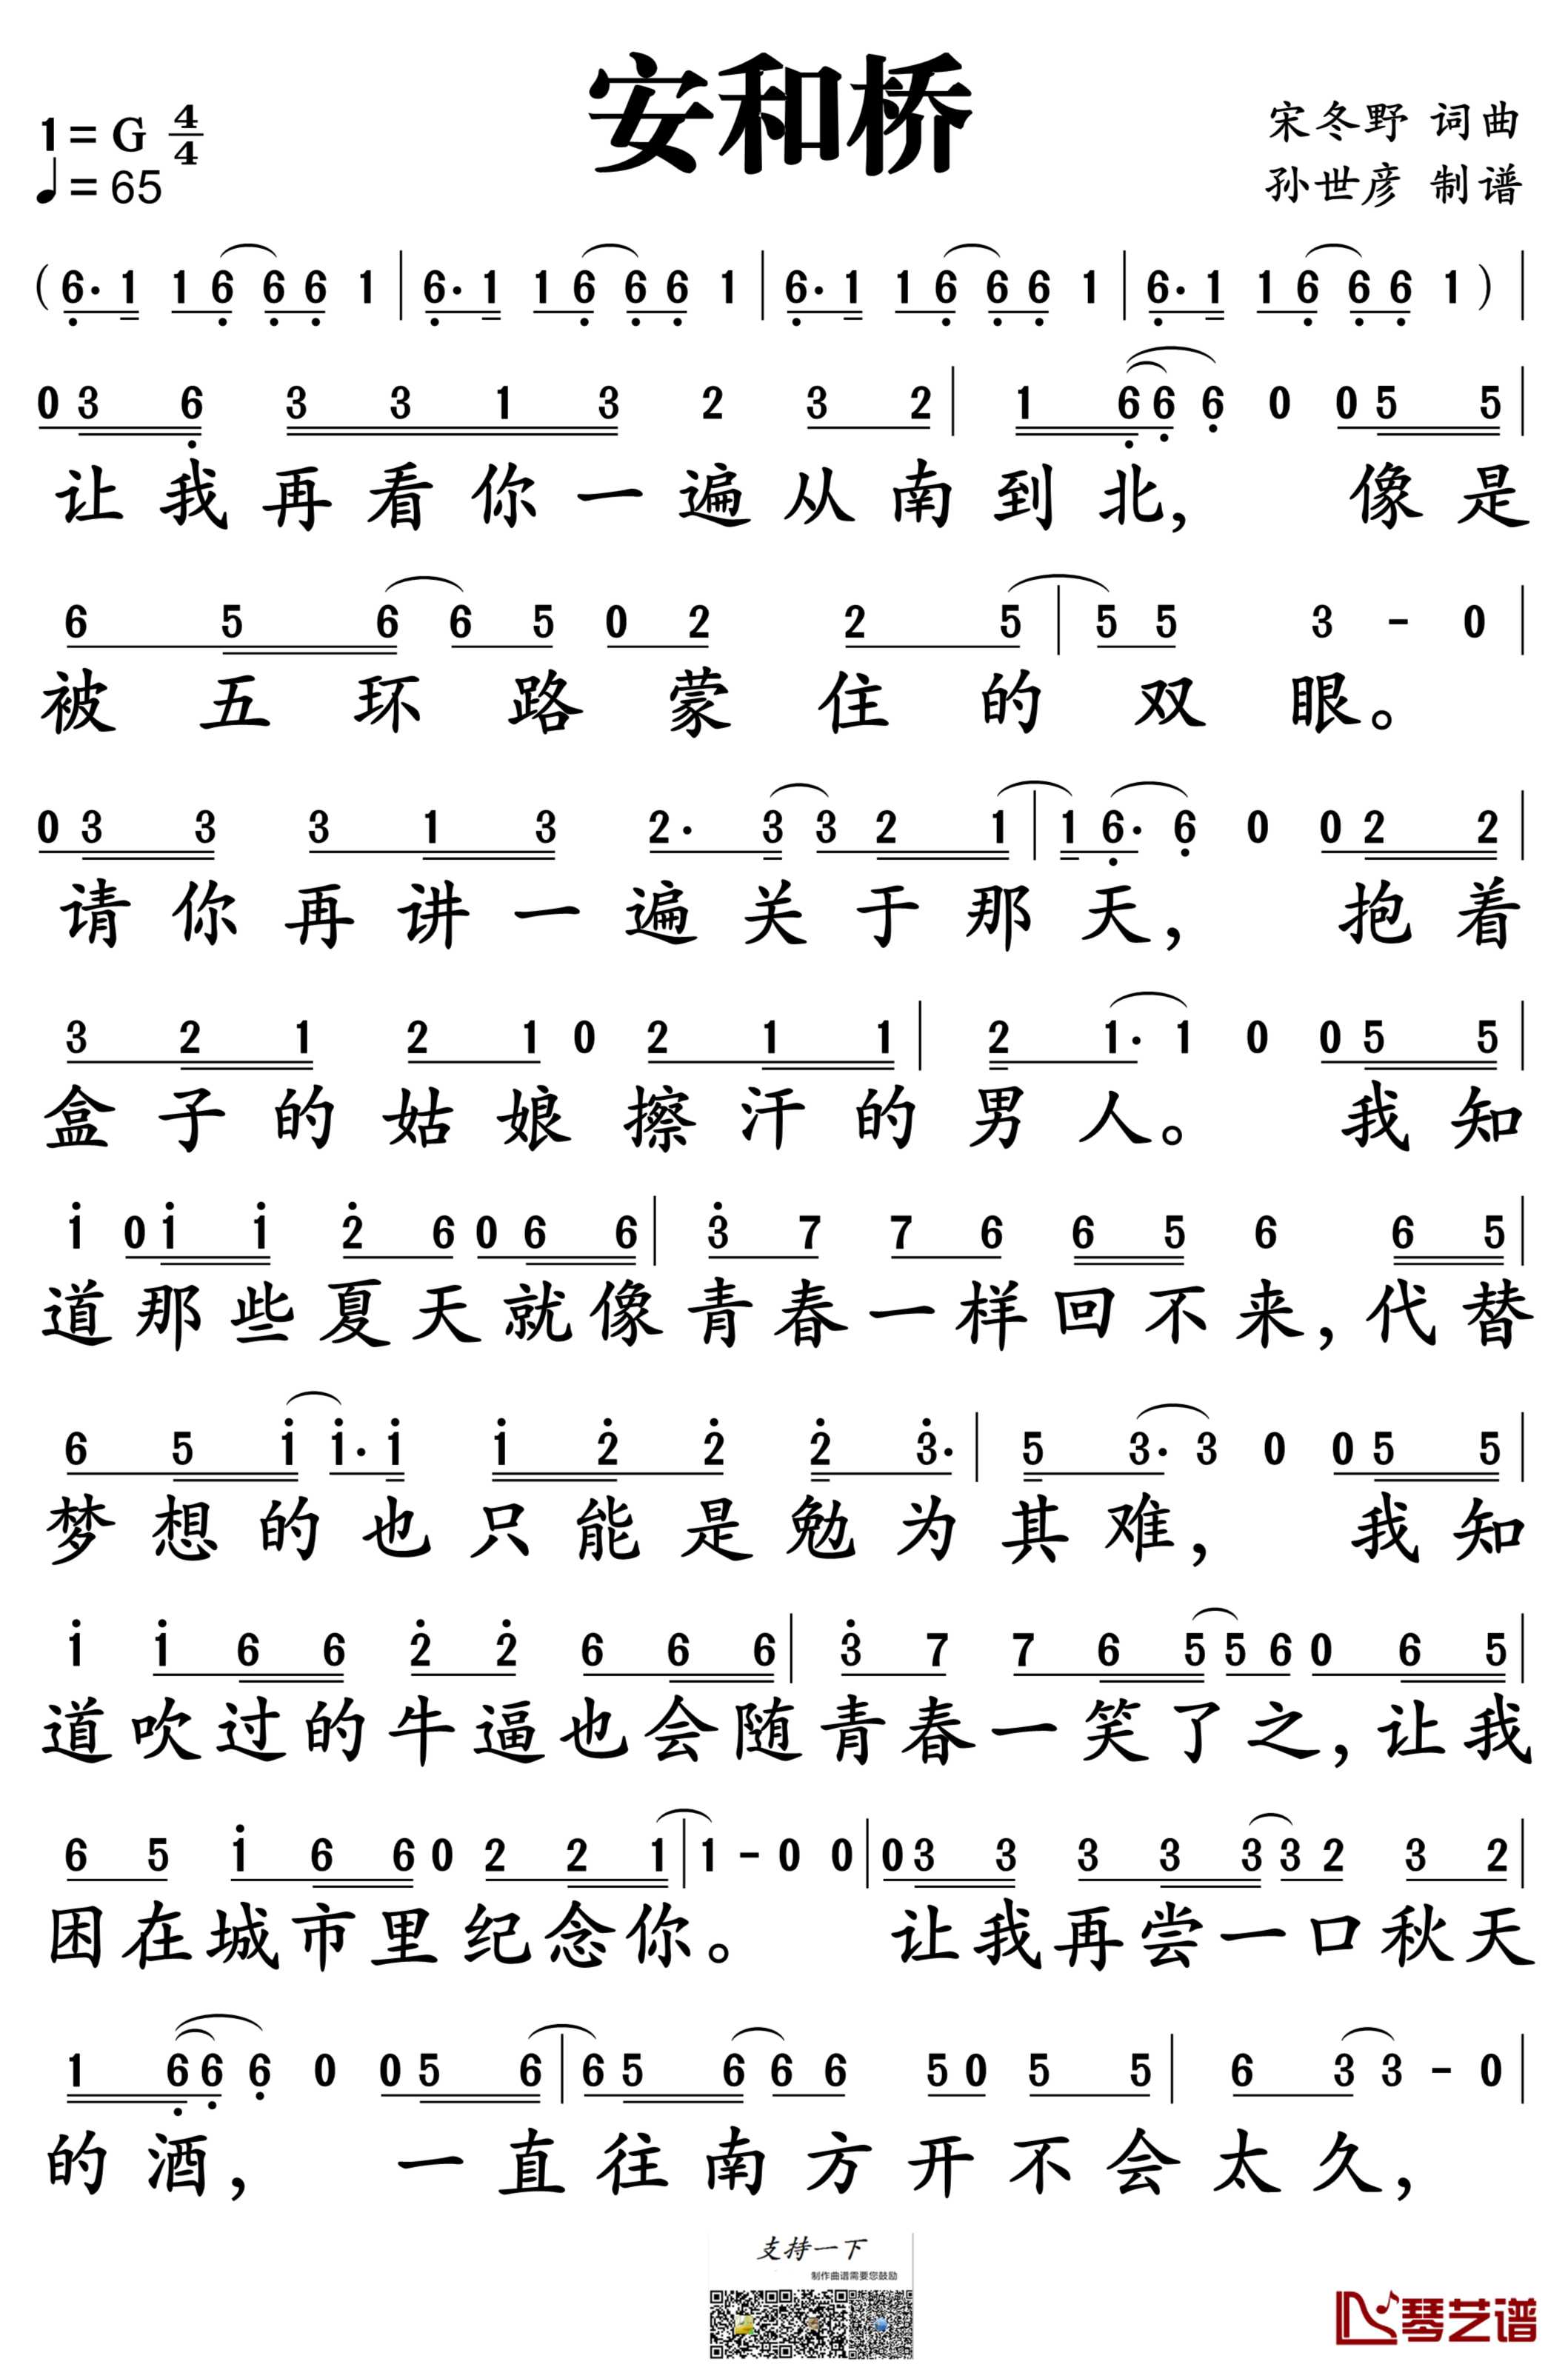 安和桥
1= G 4/4
♩= 65
宋冬野 词曲
孙世彦 制谱
( 6· 1 1 6 6 6 1 | 6· 1 1 6 6 6 1 | 6· 1 1 6 6 6 1 | 6· 1 1 6 6 6 1 ) |
0 3 6 3 3 1 3 2 3 2 | 1 6 6 6 0 0 5 5 |
让我再看你一遍从南到北， 像是
6 5 6 6 5 0 2 2 5 | 5 5 3 - 0 |
被五环路蒙住的双眼。
0 3 3 3 1 3 2· 3 3 2 1 | 1 6· 6 0 0 2 2 |
请你再讲一遍关于那天， 抱着
3 2 1 2 1 0 2 1 1 | 2 1· 1 0 0 5 5 |
盒子的姑娘擦汗的男人。 我知
i 0 i i 2̇ 6 0 6 6 | 3̇ 7 7 6 6 5 6 6 5 |
道那些夏天就像青春一样回不来，代替
6 5 i i· i i 2̇ 2̇ 2̇ 3̇· | 5 3· 3 0 0 5 5 |
梦想的也只能是勉为其难， 我知
i i 6 6 2̇ 2̇ 6 6 6 | 3̇ 7 7 6 5 5 6 0 6 5 |
道吹过的牛逼也会随青春一笑了之，让我
6 5 i 6 6 0 2 2 1 | 1 - 0 0 | 0 3 3 3 3 3 3 2 3 2 |
困在城市里纪念你。 让我再尝一口秋天
1 6 6 6 0 0 5 6 | 6 5 6 6 6 5 0 5 5 | 6 3 3 - 0 |
的酒， 一直往南方开不会太久，
支持一下
制作曲谱需要您鼓励
琴艺谱